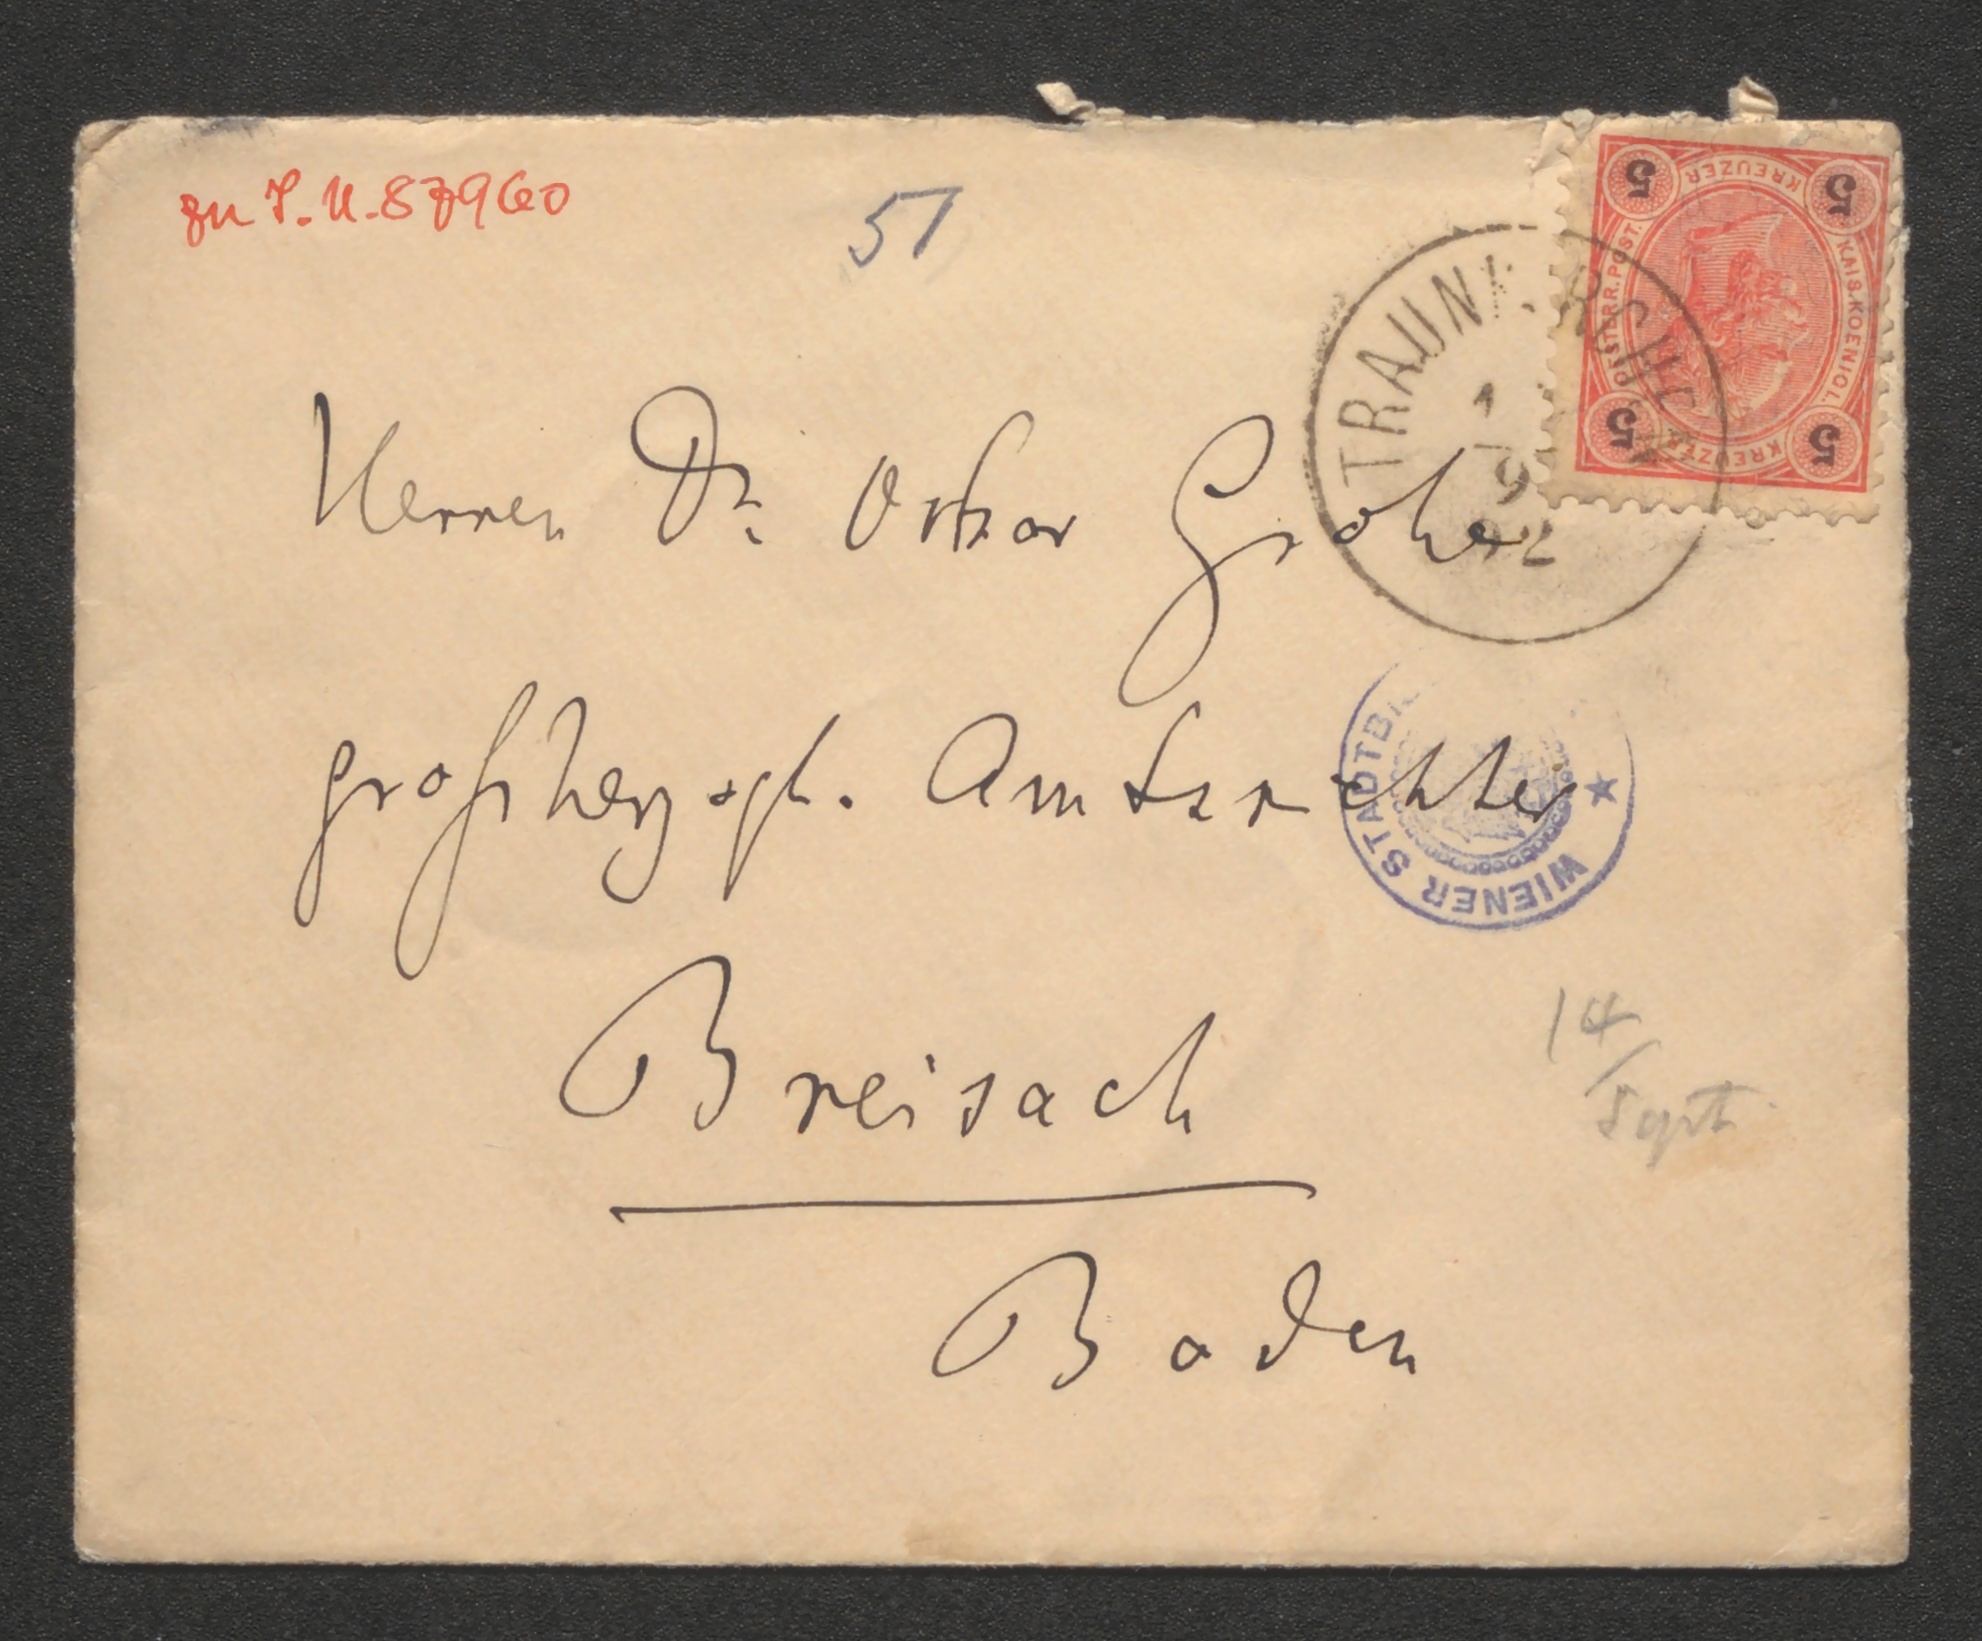 zu I.N. 87960
51
5 KREUZER 5
KAIS. KOENIGL.
OESTERR. POST.
5 KREUZER 5
TRAUNKIRCHEN
9
92
Herren Dr. Oskar Grohe
großherzogl. Amtsrichter
WIENER STADTBI
14/Sept
Breisach
Baden